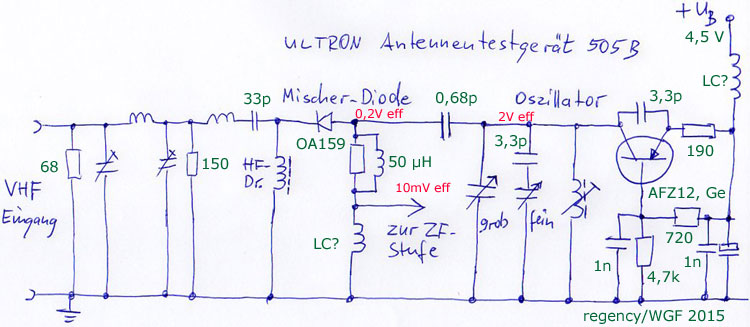 ULTRON Antennentestgerät 505B
+UB
4,5 V
LC?
33p
Mischer-Diode
0,2V eff
0,68p
2V eff
Oszillator
3,3p
3,3p
68
150
OA159
50 µH
190
VHF
Eingang
HF-
Dr.
10mV eff
AFZ12, Ge
grob
fein
zur ZF-
Stufe
LC?
720
1n
4,7k
1n
regency/WGF 2015